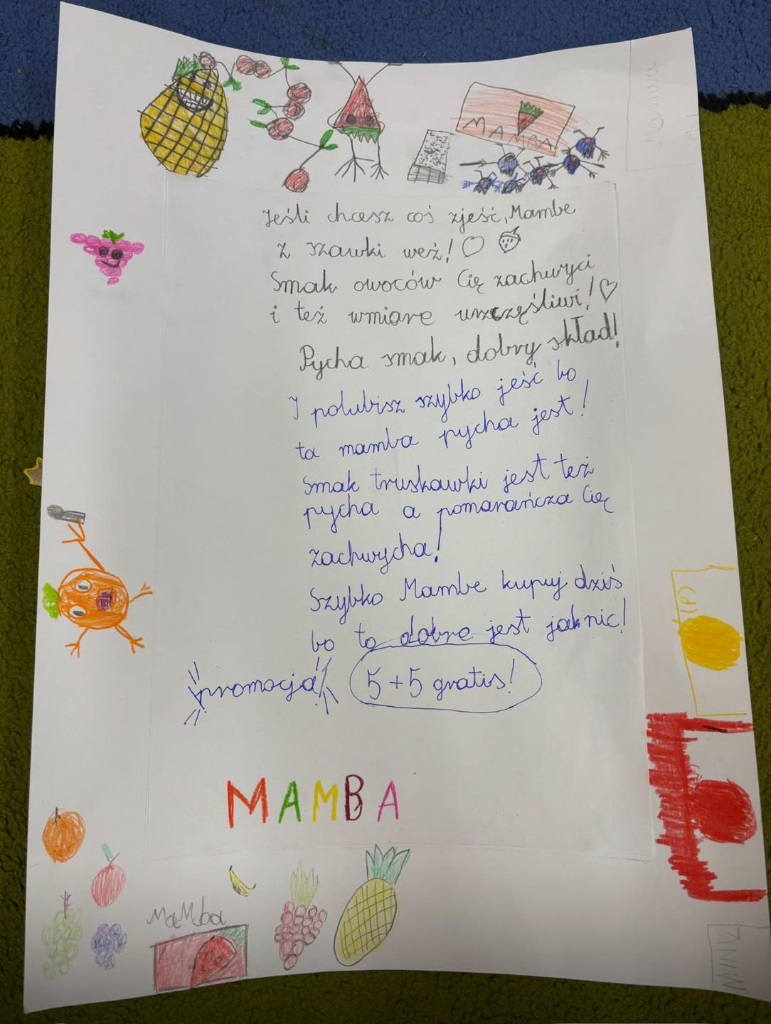 MAMBA
Jeśli chcesz coś zjeść, Mambe
z szawki weź!
Smak owoców Cię zachwyci
i też wmiarę uszczęśliwi!
Pycha smak, dobry skład!
I polubisz szybko jeść bo
ta mamba pycha jest!
Smak truskawki jest też
pycha a pomarańcza Cię
zachwycha!
Szybko Mambe kupuj dziś
bo to dobre jest jak nic!
promocja! 5+5 gratis!
MAMBA
MaMba